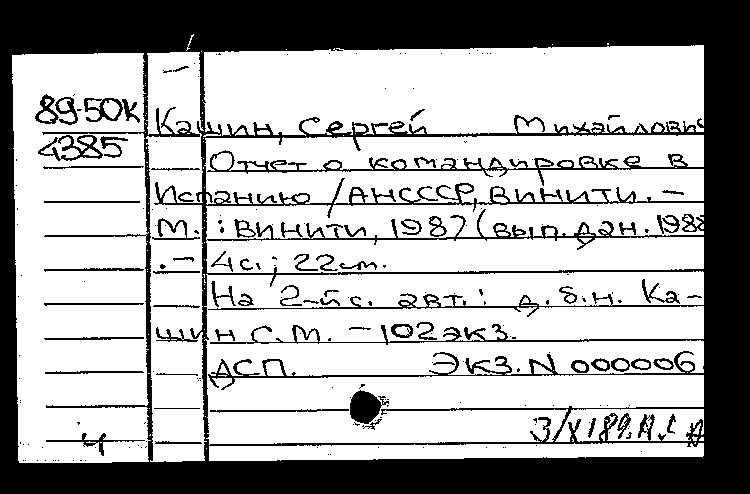 89-50К
4385
Кашин, Сергей Михайлович
Отчет о командировке в
Испанию / АНСССР, ВИНИТИ. –
М. : ВИНИТИ, 1987 (вып. дан. 1988
. – 4 с.; 22 см.
На 2-й с. авт.: д. б. н. Ка-
шин С. М. – 102 экз.
ДСП. Экз. N 000006
3/X 189.
ч